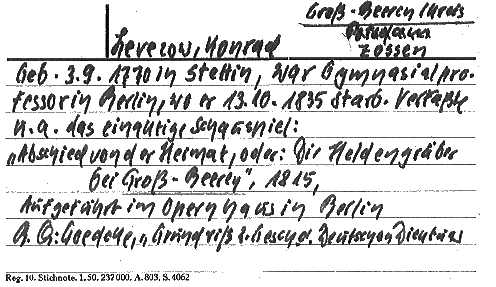 Groß-Beeren Kreis
Potsdam
Zossen
Levezow, Konrad
Geb. 3.9. 1770 in Stettin, war Gymnasialpro-
fessor in Berlin, wo er 13.10. 1835 starb. Verfaßte
u.a. das einaktige Schauspiel:
„Abschied von der Heimat, oder: Die Heldengräber
bei Groß-Beeren", 1815,
Aufgeführt im Opernhaus in Berlin
Goedeke, „Grundriß z. Gesch. d. Deutschen Dichtung
Reg. 10. Stichnote. 1. 50. 237 000. A. 803. S. 4062